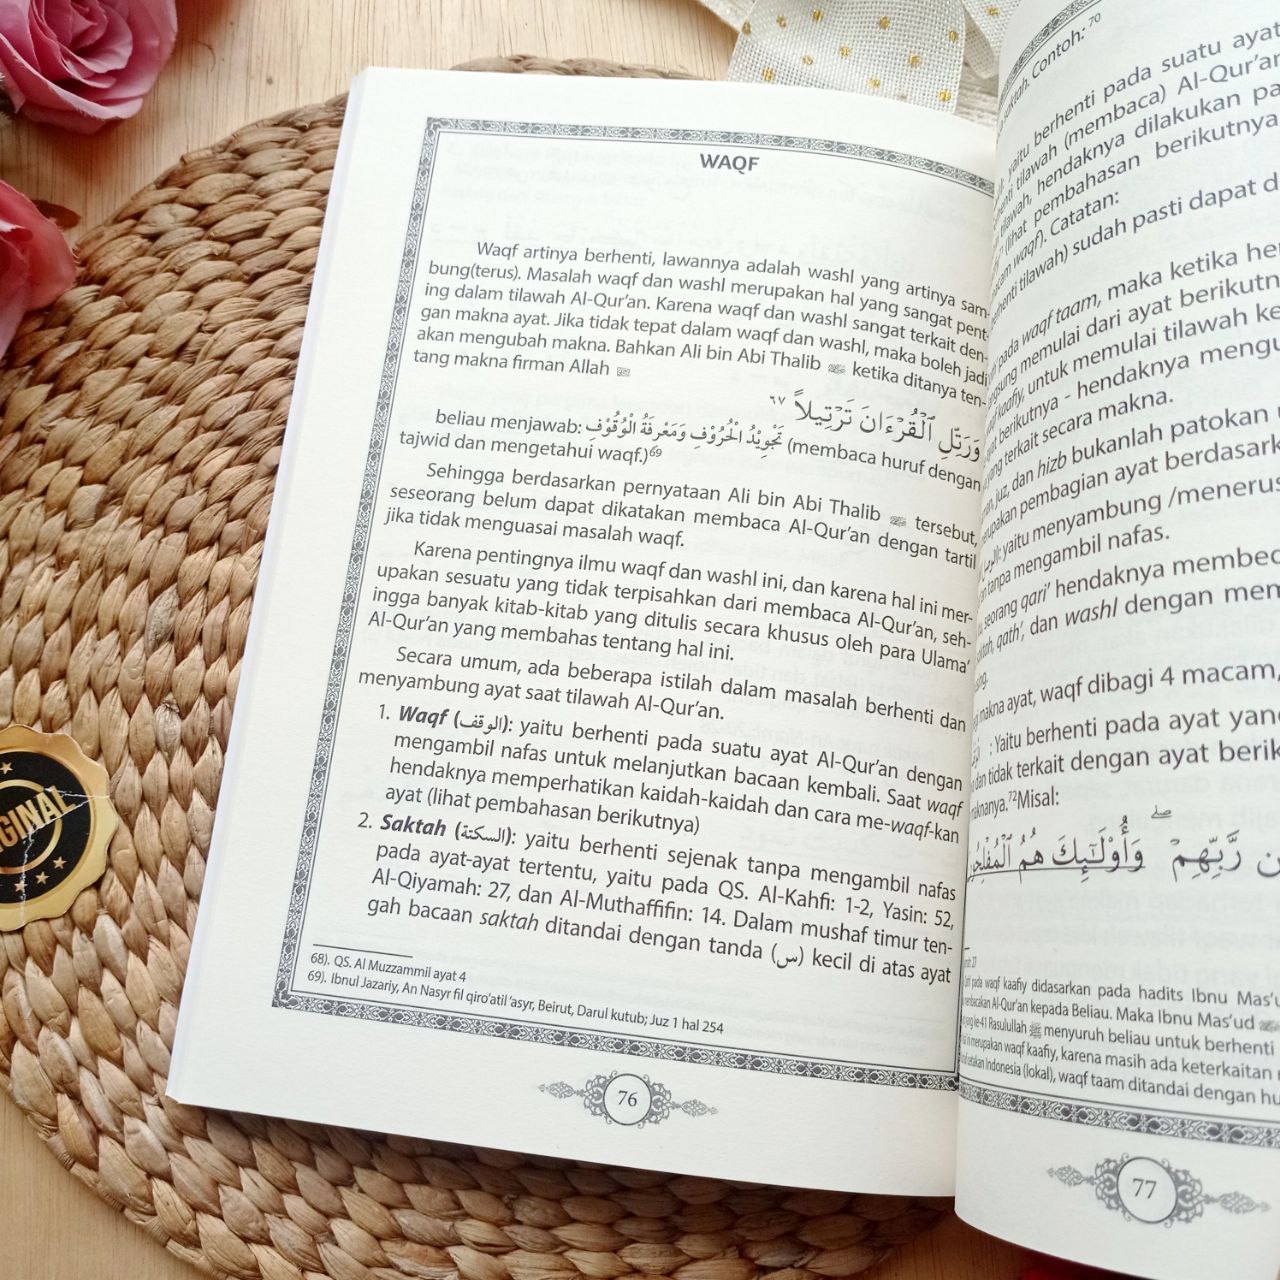 WAQF
Waqf artinya berhenti, lawannya adalah washl yang artinya sam-
bung(terus). Masalah waqf dan washl merupakan hal yang sangat pent-
ing dalam tilawah Al-Qur'an. Karena waqf dan washl sangat terkait den-
gan makna ayat. Jika tidak tepat dalam waqf dan washl, maka boleh jadi
akan mengubah makna. Bahkan Ali bin Abi Thalib ketika ditanya ten-
tang makna firman Allah
وَرَتِّلِ ٱلْقُرْءَانَ تَرْتِيلاً ٦٧
beliau menjawab: تَجْوِيْدُ الْحُرُوْفِ وَمَعْرِفَةُ الْوُقُوْفِ (membaca huruf dengan
tajwid dan mengetahui waqf.)69
Sehingga berdasarkan pernyataan Ali bin Abi Thalib tersebut,
seseorang belum dapat dikatakan membaca Al-Qur'an dengan tartil
jika tidak menguasai masalah waqf.
Karena pentingnya ilmu waqf dan washl ini, dan karena hal ini mer-
upakan sesuatu yang tidak terpisahkan dari membaca Al-Qur'an, seh-
ingga banyak kitab-kitab yang ditulis secara khusus oleh para Ulama'
Al-Qur'an yang membahas tentang hal ini.
Secara umum, ada beberapa istilah dalam masalah berhenti dan
menyambung ayat saat tilawah Al-Qur'an.
1. Waqf (الوقف): yaitu berhenti pada suatu ayat Al-Qur'an dengan
mengambil nafas untuk melanjutkan bacaan kembali. Saat waqf
hendaknya memperhatikan kaidah-kaidah dan cara me-waqf-kan
ayat (lihat pembahasan berikutnya)
2. Saktah (السكتة): yaitu berhenti sejenak tanpa mengambil nafas
pada ayat-ayat tertentu, yaitu pada QS. Al-Kahfi: 1-2, Yasin: 52,
Al-Qiyamah: 27, dan Al-Muthaffifin: 14. Dalam mushaf timur ten-
gah bacaan saktah ditandai dengan tanda (س) kecil di atas ayat
68). QS. Al Muzzammil ayat 4
69). Ibnul Jazariy, An Nasyr fil qiro'atil 'asyr, Beirut, Darul kutub; Juz 1 hal 254
76
saktah. Contoh: 70
yaitu berhenti pada suatu ayat
tilawah (membaca) Al-Qur'an
tilawah, hendaknya dilakukan pa
(lihat pembahasan berikutnya
waqf). Catatan:
tilawah) sudah pasti dapat d
pada waqf taam, maka ketika he
memulai dari ayat berikutn
kaafiy, untuk memulai tilawah ke
ayat berikutnya - hendaknya mengu
yang terkait secara makna.
juz, dan hizb bukanlah patokan
merupakan pembagian ayat berdasark
yaitu menyambung /menerus
tanpa mengambil nafas.
seorang qari' hendaknya membed
saktah, qath', dan washl dengan mem
makna ayat, waqf dibagi 4 macam,
: Yaitu berhenti pada ayat yan
dan tidak terkait dengan ayat berik
maknanya.72 Misal:
رَّبِّهِمْ ۖ وَأُوْلَٰٓئِكَ هُمُ ٱلْمُفْلِحُونَ
pada waqf kaafiy didasarkan pada hadits Ibnu Mas'u
membacakan Al-Qur'an kepada Beliau. Maka Ibnu Mas'ud
ke-41 Rasulullah ﷺ menyuruh beliau untuk berhenti
merupakan waqf kaafiy, karena masih ada keterkaitan
cetakan Indonesia (lokal), waqf taam ditandai dengan hu
77
GINAL